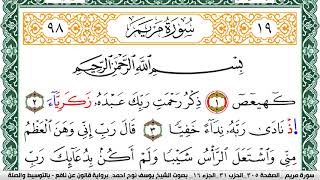 ١٩ سُورَةُ مَرْيَمَ ٩٨
بِسْمِ اللَّهِ الرَّحْمَٰنِ الرَّحِيمِ
كَهيعَصَ ١ ذِكْرُ رَحْمَتِ رَبِّكَ عَبْدَهُۥ زَكَرِيَّاءَ ٢
إِذْ نَادَىٰ رَبَّهُۥ نِدَاءً خَفِيّٗا ٣ قَالَ رَبِّ إِنِّي وَهَنَ اَلْعَظْمُ
مِنِّي وَاشْتَعَلَ اَلرَّأْسُ شَيْبٗا وَلَمْ أَكُنۢ بِدُعَائِكَ رَبِّ
سورة مريم . الصفحة ٣٠٥ . الحزب ٣١ . الجزء ١٦ . بصوت الشيخ يوسف نوح احمد . برواية قالون عن نافع - بالتوسيط والصلة